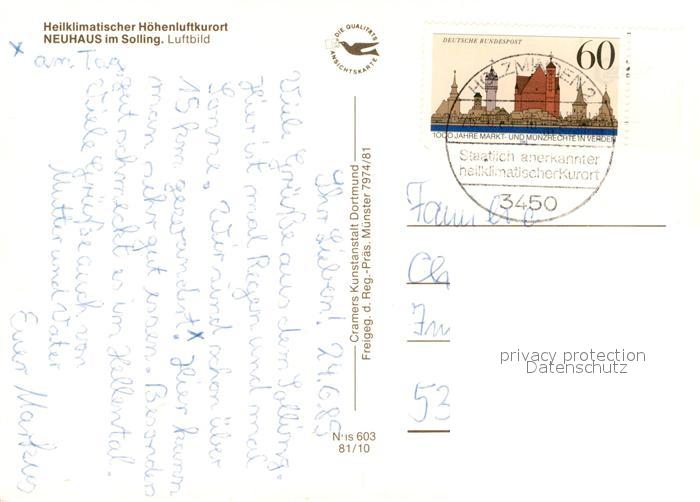 Heilklimatischer Höhenluftkurort
NEUHAUS im Solling. Luftbild
DIE QUALITÄTS
ANSICHTSKARTE
DEUTSCHE BUNDESPOST
60
1000 JAHRE MARKT- UND MÜNZRECHTE IN VERDEN
HOLZMINDEN 2
Staatlich anerkannter
heilklimatischer Kurort
3450
Ihr Lieben! 24.6.85
Viele Grüße aus dem Solling.
Hier ist mal Regen und mal
Sonne. Wir sind schon über
15 km gewandert.x Hier kann
man sehr gut essen. Besonders
gut schmeckt es im Hellental.
Viele Grüße auch von
Mutter und Vater
Euer Markus
x am Tag
Cramers Kunstanstalt Dortmund
Freigeg. d. Reg.-Präs. Münster 7974/81
N'is 603
81/10
Familie
53
privacy protection
Datenschutz